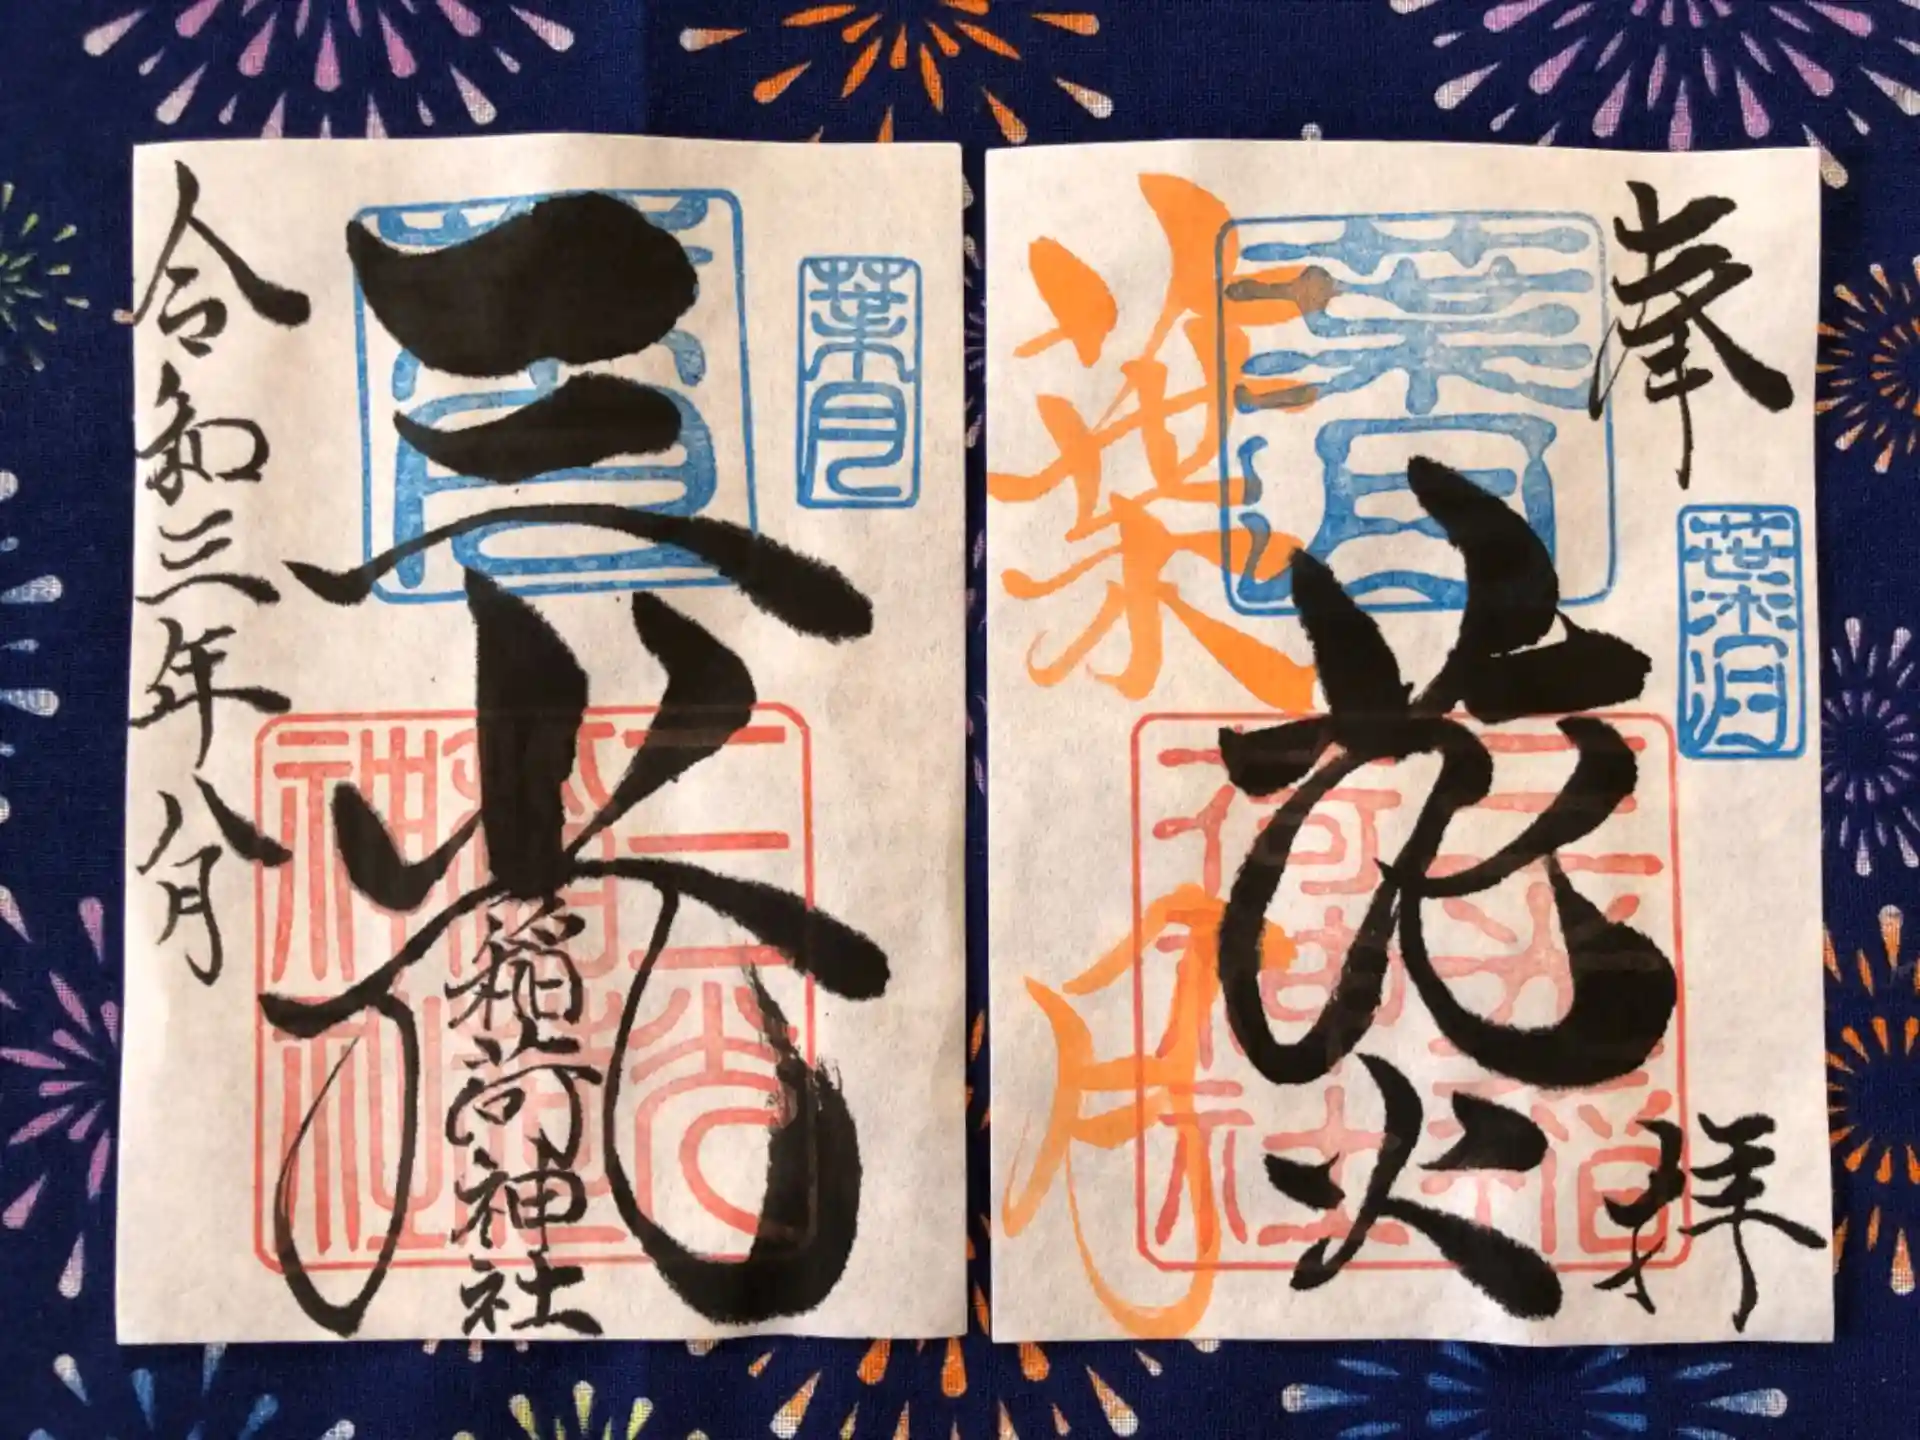 奉拝
葉月
葉月
花火
三光稲荷神社
葉月
葉月
三光
稲荷神社
葉月
三光稲荷神社
令和三年八月